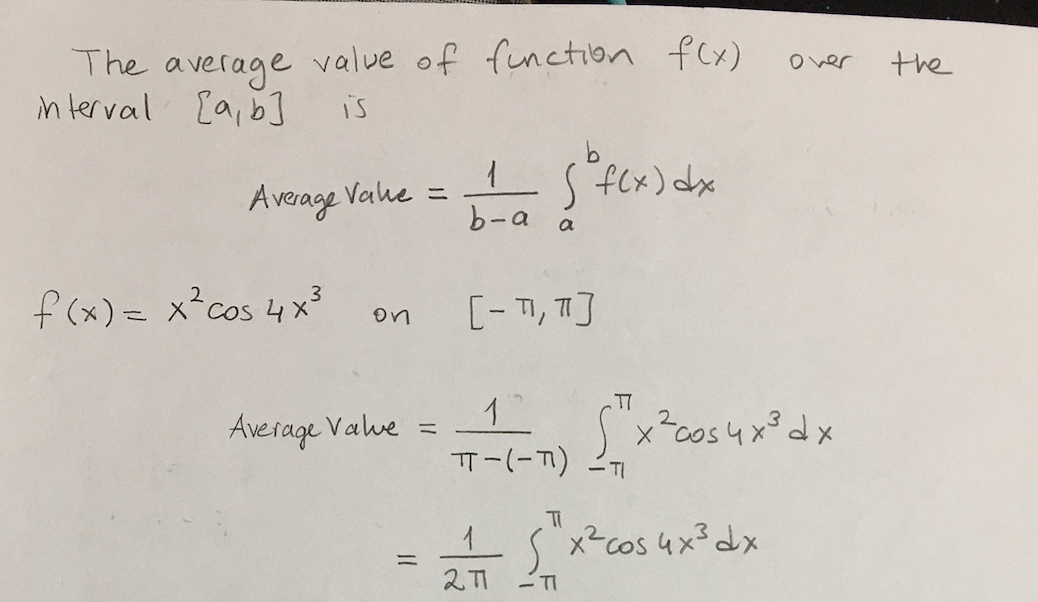 The average value of function f(x) over the
interval [a,b] is
Average Value = 1/(b-a) ∫_a^b f(x) dx
f(x) = x² cos 4x³ on [-π, π]
Average Value = 1/(π-(-π)) ∫_{-π}^{π} x² cos 4x³ dx
= 1/(2π) ∫_{-π}^{π} x² cos 4x³ dx